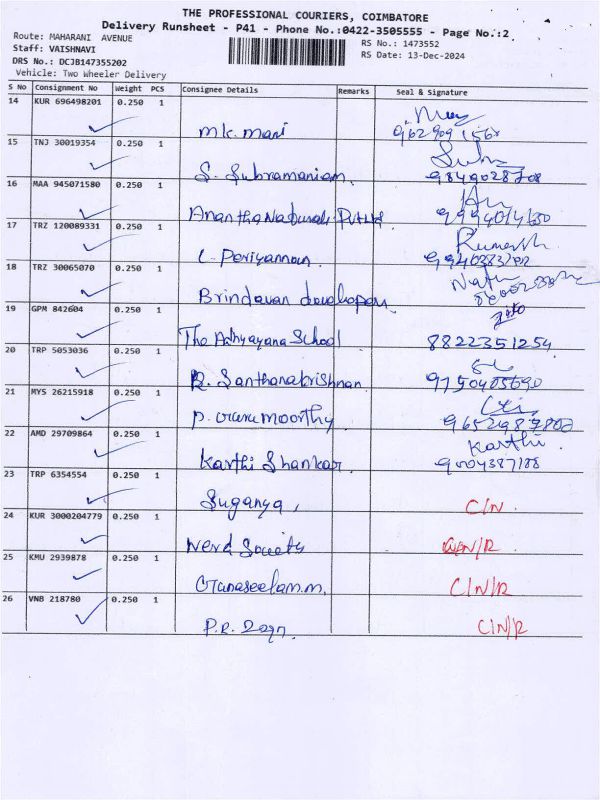 THE PROFESSIONAL COURIERS, COIMBATORE
Delivery Runsheet - P41 - Phone No.:0422-3505555 - Page No.:2
Route: MAHARANI AVENUE
RS No.: 1473552
Staff: VAISHNAVI
RS Date: 13-Dec-2024
DRS No.: DCJB147355202
Vehicle: Two Wheeler Delivery
S No Consignment No Weight PCS Consignee Details Remarks Seal & Signature
14 KUR 696498201 0.250 1
mk. mani
15 TNJ 30019354 0.250 1
S. Subramaniam 9849028708
16 MAA 945071580 0.250 1
17 TRZ 120089331 0.250 1
Ramesh
L. Periyannan
18 TRZ 30065070 0.250 1
Brindavan
19 GPM 842604 0.250 1
The Adhyayana School 8822351254
20 TRP 5053036 0.250 1
R. Santhanakrishnan 9750405690
21 MYS 26215918 0.250 1
22 AMD 29709864 0.250 1
Karthi
Karthi Shankar 9004387188
23 TRP 6354554 0.250 1
Suganya, C/N
24 KUR 3000204779 0.250 1
Nerd Society
25 KMU 2939878 0.250 1
C/N/R
26 VNB 218780 0.250 1
P.R. C/N/R